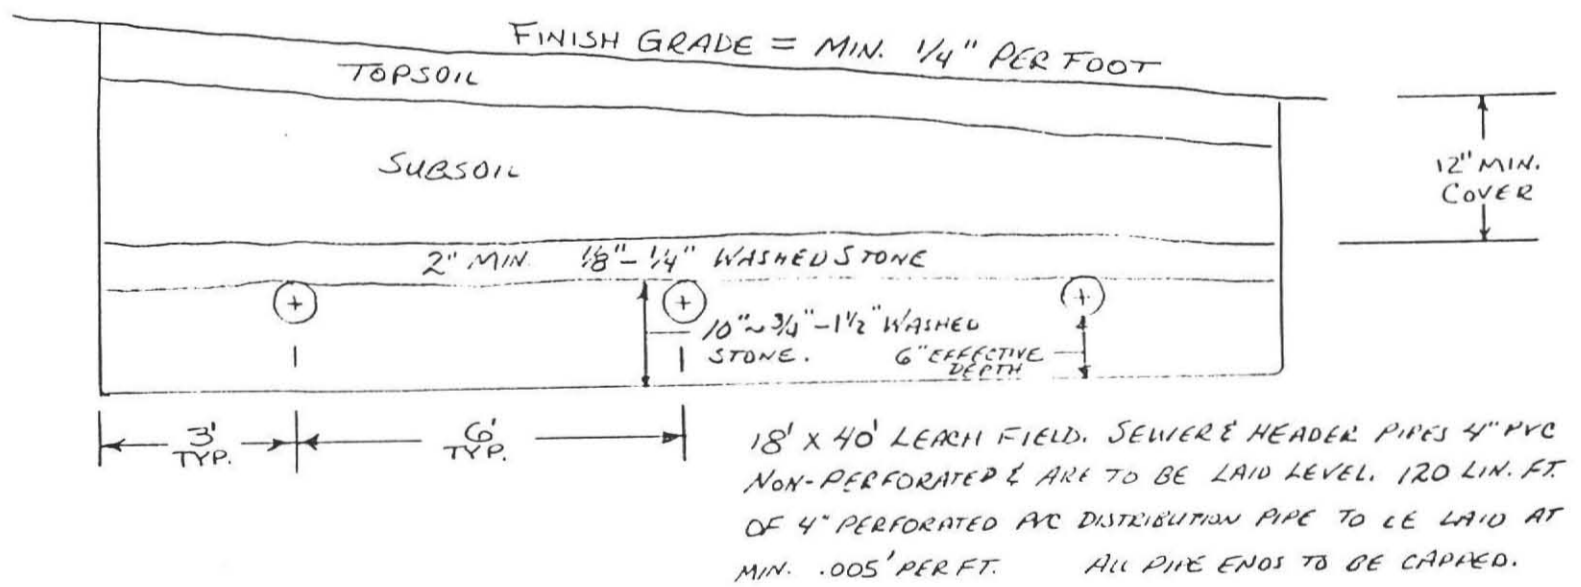 FINISH GRADE = MIN. 1/4" PER FOOT
TOPSOIL
SUBSOIL
12" MIN.
COVER
2" MIN. 1/8"-1/4" WASHED STONE
10"~3/4"-1 1/2" WASHED
STONE.
6" EFFECTIVE
DEPTH
3'
TYP.
6'
TYP.
18' X 40' LEACH FIELD. SEWER & HEADER PIPES 4" PVC
NON-PERFORATED & ARE TO BE LAID LEVEL. 120 LIN. FT.
OF 4" PERFORATED PVC DISTRIBUTION PIPE TO BE LAID AT
MIN. .005' PER FT. ALL PIPE ENDS TO BE CAPPED.